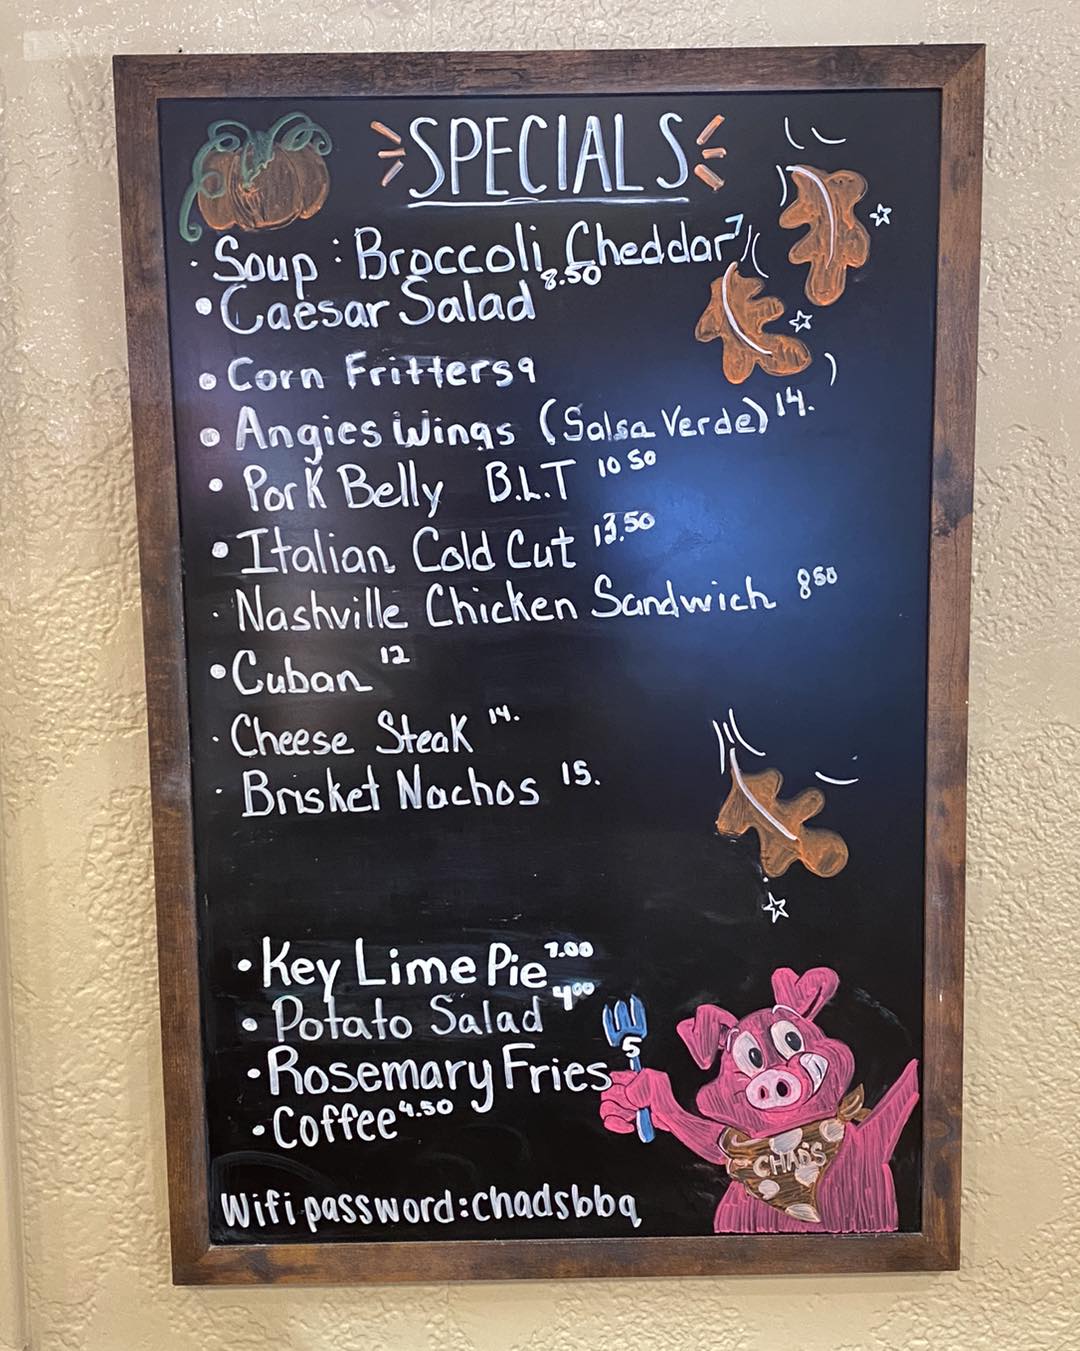 SPECIALS
· Soup : Broccoli Cheddar 7
• Caesar Salad 8.50
• Corn Fritters 9
• Angies Wings (Salsa Verde) 14.
• Pork Belly B.L.T 10 50
• Italian Cold Cut 13.50
· Nashville Chicken Sandwich 8 50
• Cuban 12
· Cheese Steak 14.
· Brisket Nachos 15.
• Key Lime Pie 7.00
• Potato Salad 4 00
• Rosemary Fries 5
• Coffee 4.50
CHAD'S
Wifi password: chadsbbq